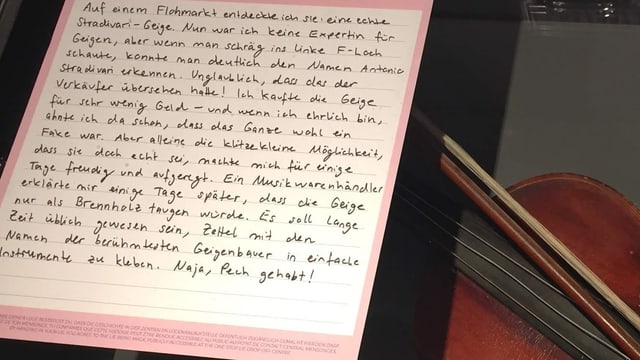 Auf einem Flohmarkt entdeckte ich sie: eine echte
Stradivari-Geige. Nun war ich keine Expertin für
Geigen, aber wenn man schräg ins linke F-Loch
schaute, konnte man deutlich den Namen Antonio
Stradivari erkennen. Unglaublich, dass das der
Verkäufer übersehen hatte! Ich kaufte die Geige
für sehr wenig Geld – und wenn ich ehrlich bin,
ahnte ich da schon, dass das Ganze wohl ein
Fake war. Aber alleine die klitzekleine Möglichkeit,
dass sie doch echt sei, machte mich für einige
Tage freudig und aufgeregt. Ein Musikwarenhändler
erklärte mir einige Tage später, dass die Geige
nur als Brennholz taugen würde. Es soll lange
Zeit üblich gewesen sein, Zettel mit den
Namen der berühmtesten Geigenbauer in einfache
Instrumente zu kleben. Naja, Pech gehabt!